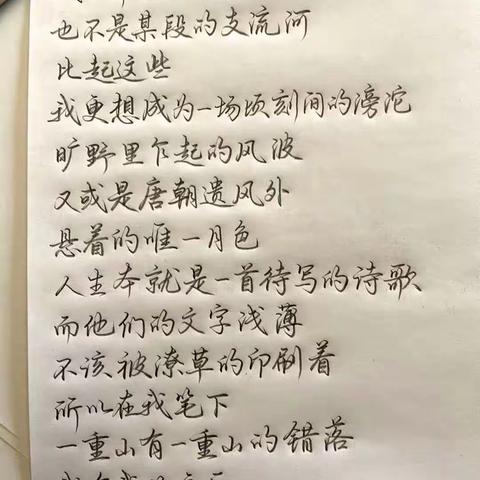 也不是某段的支流河
比起这些
我更想成为一场顷刻间的滂沱
旷野里乍起的风波
又或是唐朝遗风外
悬着的唯一月色
人生本就是一首待写的诗歌
而他们的文字浅薄
不该被潦草的印刷着
所以在我笔下
一重山有一重山的错落